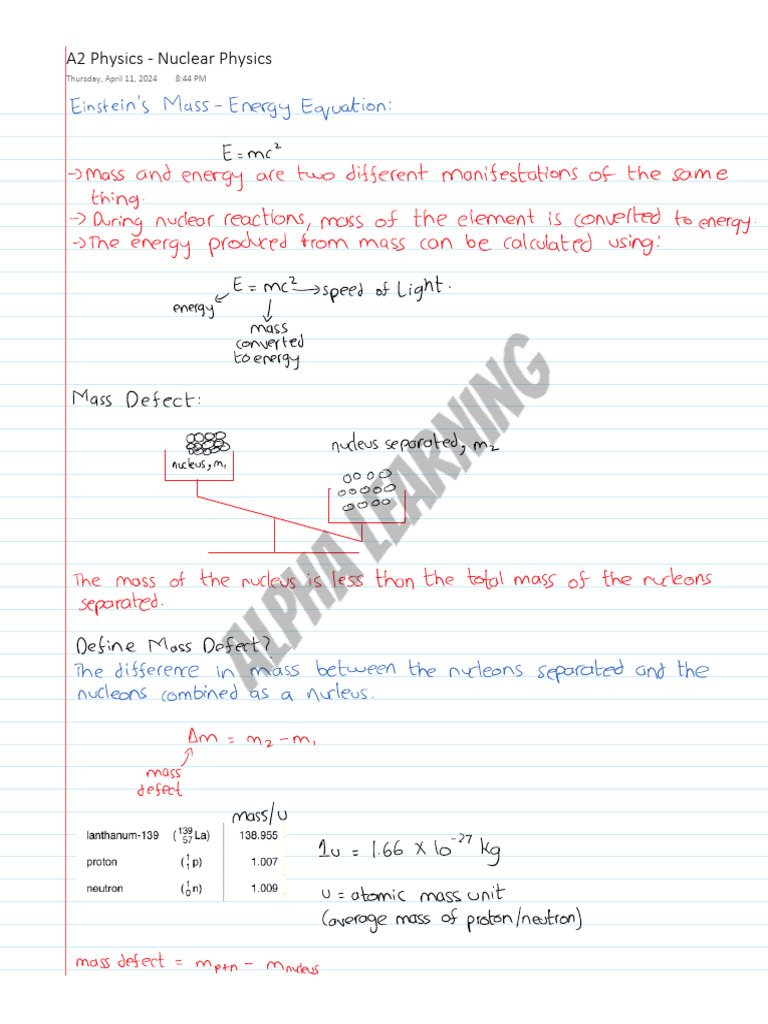 A2 Physics - Nuclear Physics
Thursday, April 11, 2024 8:44 PM
Einstein's Mass-Energy Equation:
E = mc²
→ Mass and energy are two different manifestations of the same
thing.
→ During nuclear reactions, mass of the element is converted to energy.
→ The energy produced from mass can be calculated using:
E = mc² → speed of Light.
energy
mass
converted
to energy
Mass Defect:
nucleus separated, m₂
nucleus, m₁
The mass of the nucleus is less than the total mass of the nucleons
separated.
Define Mass Defect?
The difference in mass between the nucleons separated and the
nucleons combined as a nucleus.
Δm = m₂ - m₁
mass
defect
mass/u
lanthanum-139 (¹³⁹₅₇La) 138.955
proton (¹₁p) 1.007
neutron (¹₀n) 1.009
1u = 1.66 × 10⁻²⁷ kg
u = atomic mass unit
(average mass of proton/neutron)
mass defect = m p+n - m nucleus
ALPHA LEARNING